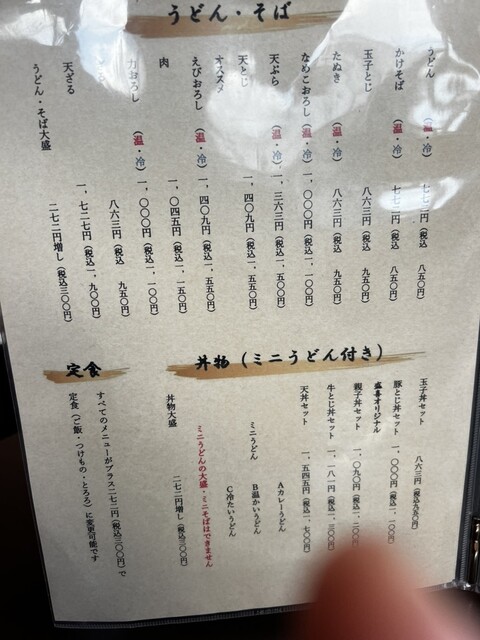 うどん・そば
うどん （温・冷） 七七二円（税込 八五〇円）
かけそば （温・冷） 七七二円（税込 八五〇円）
玉子とじ 八六三円（税込 九五〇円）
たぬき （温・冷） 八六三円（税込 九五〇円）
なめこおろし（温・冷） 一、〇〇〇円（税込一、一〇〇円）
天ぷら （温・冷） 一、三六三円（税込一、五〇〇円）
天とじ 一、四〇九円（税込一、五五〇円）
オススメ
えびおろし （温・冷） 一、四〇九円（税込一、五五〇円）
肉 一、〇四五円（税込一、一五〇円）
力おろし （温・冷） 一、〇〇〇円（税込一、一〇〇円）
八六三円（税込 九五〇円）
天ざる 一、七二七円（税込一、九〇〇円）
うどん・そば大盛 二七二円増し（税込三〇〇円）
丼物（ミニうどん付き）
玉子丼セット 八六三円（税込九五〇円）
豚とじ丼セット 一、〇〇〇円（税込一、一〇〇円）
オリジナル
親子丼セット 一、〇九〇円（税込一、二〇〇
牛とじ丼セット 一、一八一円（税込一、三〇〇円）
天丼セット 一、五四五円（税込一、七〇〇円）
ミニうどん
Aカレーうどん
B温かいうどん
C冷たいうどん
ミニうどんの大盛・ミニそばはできません
丼物大盛 二七二円増し（税込三〇〇円）
定食
すべてのメニューがプラス二七二円（税込三〇〇円）で
定食（ご飯・つけもの・とろろ）に変更可能です